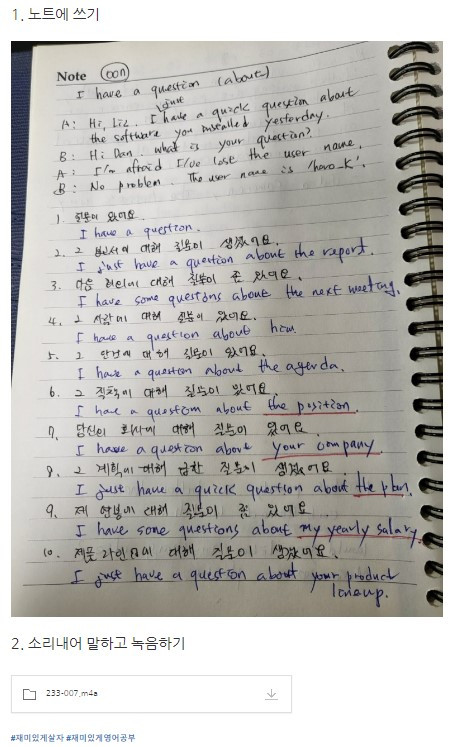 1. 노트에 쓰기
Note 007
I have a question (about)
A: Hi, Liz. I just have a quick question about
the software you installed yesterday.
B: Hi Dan. what is your question?
A: I'm afraid I've lost the user name.
B: No problem. The user name is
1. 질문이 있어요.
I have a question.
2. 그 보고서에 대해 질문이 생겼어요.
I just have a question about the report.
3. 다음 회의에 대해 질문이 좀 있어요.
I have some questions about the next meeting.
4. 그 사람에 대해 질문이 있어요.
I have a question about him.
5. 그 안건에 대해 질문이 있어요.
I have a question about the agenda.
6. 그 직책에 대해 질문이 있어요.
I have a question about the position.
7. 당신의 회사에 대해 질문이 있어요.
I have a question about your company.
8. 그 계획에 대해 급한 질문이 생겼어요.
I just have a quick question about the plan.
9. 제 연봉에 대해 질문이 좀 있어요
I have some questions about my yearly salary.
10. 제품 라인업에 대해 질문이 생겼어요.
I just have a question about your product
lineup.
2. 소리내어 말하고 녹음하기
233-007.m4a
#재미있게살자 #재미있게영어공부